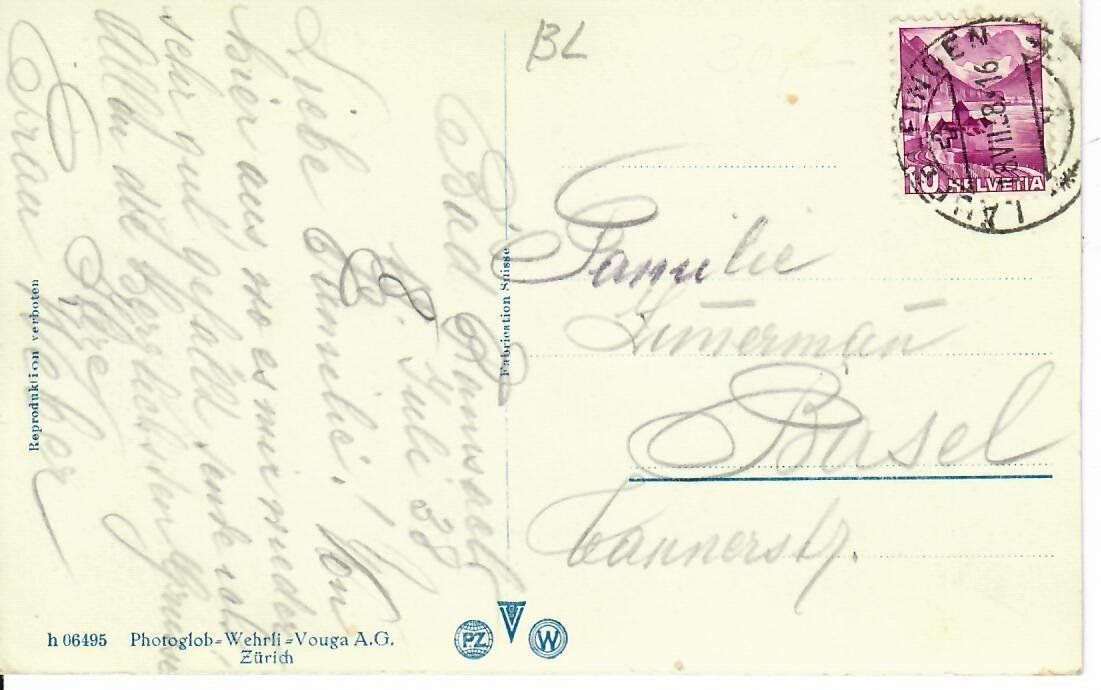 BL
Bad Ramsach
18. Juli 38
Liebe Familie! Von
hier aus wo es mir wieder
sehr gut gefällt sende ich
Allen die herzlichsten Grüsse
Ihre
Frau Weber
Familie
Zimmerman
Basel
Tannerstr.
HELVETIA
10
LÄUFELFINGEN
18.VII.38-16
Reproduktion verboten
Fabrication Suisse
h 06495 Photoglob=Wehrli=Vouga A.G.
Zürich
PZ
V
W